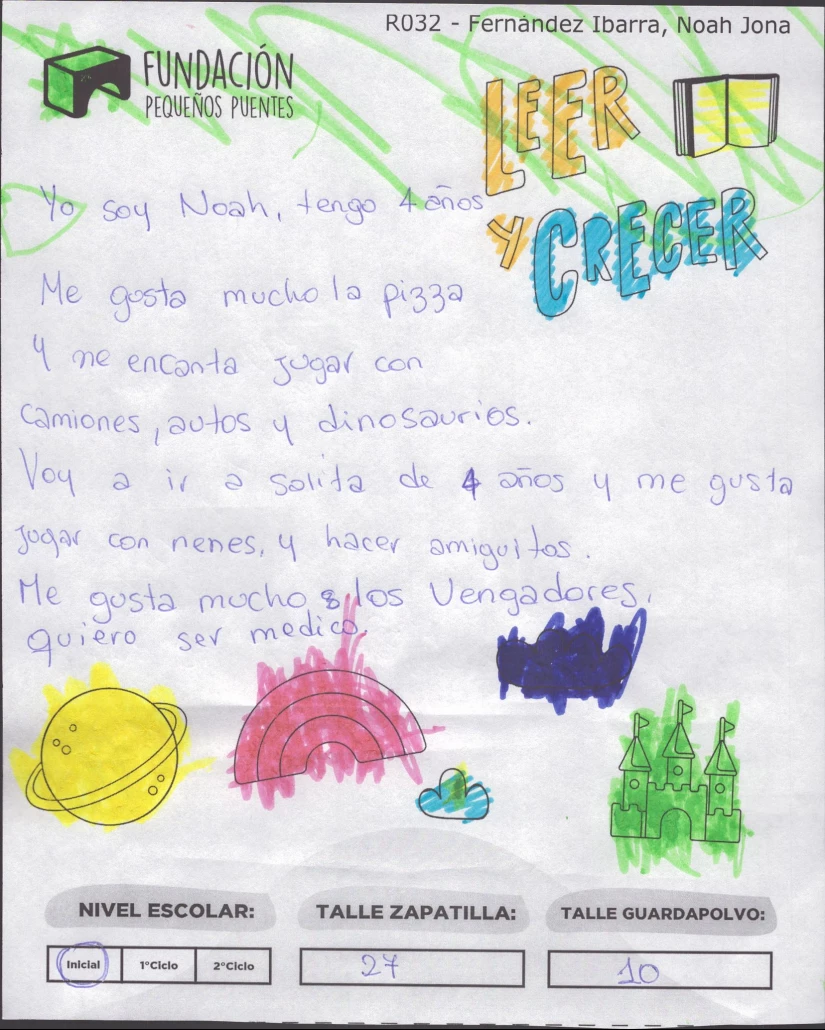 R032 - Fernández Ibarra, Noah Jona
FUNDACIÓN
PEQUEÑOS PUENTES
LEER
Y CRECER
Yo soy Noah, tengo 4 años
Me gusta mucho la pizza
y me encanta jugar con
camiones, autos y dinosaurios.
Voy a ir a salita de 4 años y me gusta
jugar con nenes, y hacer amiguitos.
Me gusta mucho los Vengadores,
quiero ser medico.
NIVEL ESCOLAR:
TALLE ZAPATILLA:
TALLE GUARDAPOLVO:
Inicial
1°Ciclo
2°Ciclo
27
10